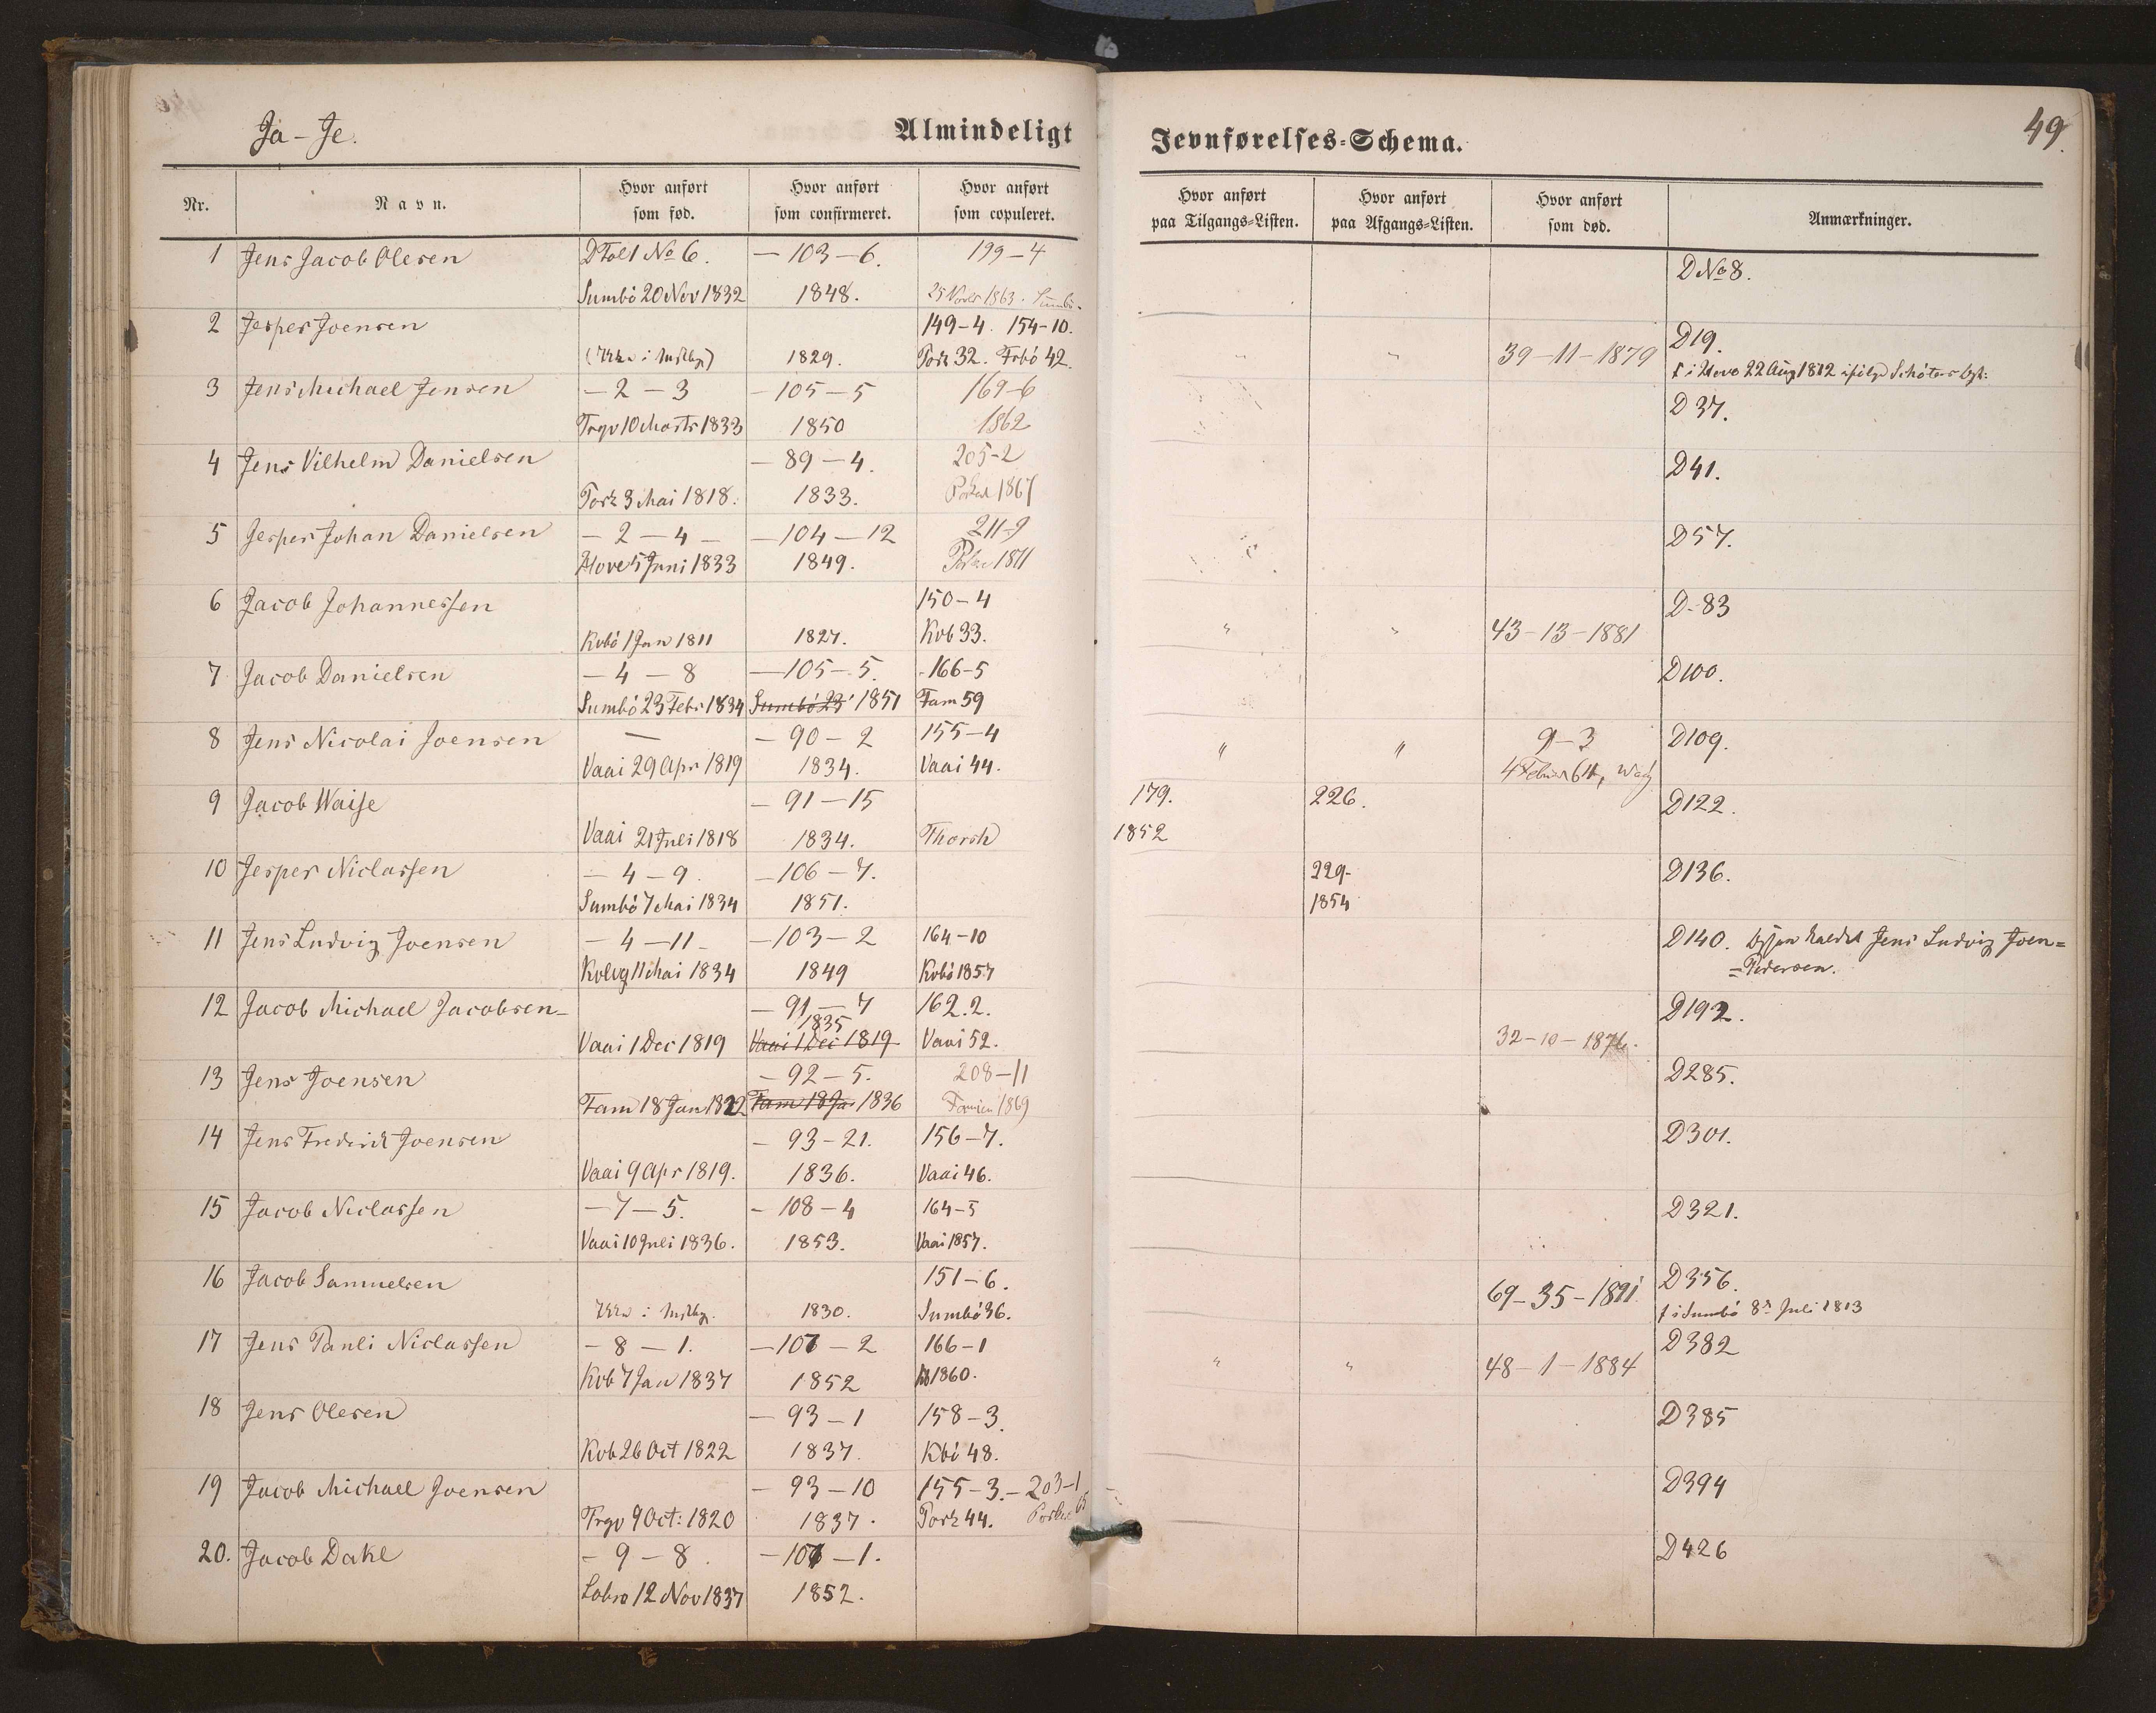 Ja - Je.
Almindeligt Jevnførelses-Schema.
49.
Nr. Navn. Hvor anført som fød. Hvor anført som confirmeret. Hvor anført som copuleret. Hvor anført paa Tilgangs-Listen. Hvor anført paa Afgangs-Listen. Hvor anført som død. Anmærkninger.
1 Jens Jacob Olesen No 6. — 103 — 6. 199 — 4 D No 8.
Sumbö 20 Nov 1832 1848. 1863.
2 Jesper Joensen 149-4. 154-10. D19.
1829. Pork 32. Frbö 42. 39-11-1879 22 Aug 1812
3 Jens Michael Jensen — 2 — 3 — 105 — 5 169-6 D 37.
Trgv 10 Marts 1833 1850 1862
4 Jens Vilhelm Danielsen — 89 — 4. 205-2 D41.
Pork 3 Mai 1818. 1833. 1867
5 Jesper Johan Danielsen — 2 — 4 — — 104 — 12 211-9 D57.
Hove 5 Juni 1833 1849. 1871
6 Jacob Johannessen 150-4 D-83
Kvbö 1 Jan 1811 1827. Kvb 33. " " 43-13-1881
7 Jacob Danielsen — 4 — 8 — 105 — 5. -166-5 D100.
Sumbö 23 Febr 1834 Sumbö 23 1851 Fam 59
8 Jens Nicolai Joensen — — 90 — 2 155-4 " " 9-3 D109.
Vaai 29 Apr 1819 1834. Vaai 44.
9 Jacob Waise — 91 — 15 179. 226. D122.
Vaai 21 Juli 1818 1834. Thorsh 1852
10 Jesper Niclassen — 4 — 9. — 106 — 7. 229- D136.
Sumbö 7 Mai 1834 1851. 1854
11 Jens Ludvig Joensen — 4 — 11 — — 103 — 2 164-10 D140. Jens Ludvig Joen=
Kvlvg 11 Mai 1834 1849 Kvbö 1857 =Pedersen.
12 Jacob Michael Jacobsen — 91 — 7 162.2. D192.
1835
Vaai 1 Dec 1819 Vaai 1 Dec 1819 Vaai 52. 32-10-1876.
13 Jens Joensen — 92 — 5. 208-11 D285.
Fam 18 Jan 1822 Fam 18 Jan 1836 1869
14 Jens Frederik Joensen — 93-21. 156-7. D301.
Vaai 9 Apr 1819. 1836. Vaai 46.
15 Jacob Niclassen — 7 — 5. — 108 — 4 164-5 D321.
Vaai 10 Juli 1836. 1853. Vaai 1857.
16 Jacob Samuelsen 151-6. D356.
1830. Sumbö 36. 69-35-1891 † i Sumbö 8 Juli 1813
17 Jens Pauli Niclassen — 8 — 1. — 107 — 2 166-1 D382
Kvb 7 Jan 1837 1852 1860. " " 48-1-1884
18 Jens Olesen — 93 — 1 158-3. D385
Kvb 26 Oct 1822 1837. Kbö 48.
19 Jacob Michael Joensen — 93 — 10 155-3. — 203-1 D394
Trgv 9 Oct: 1820 1837. Pork 44. 65
20. Jacob Dahl — 9 — 8. — 107 — 1. D426
12 Nov 1837 1852.